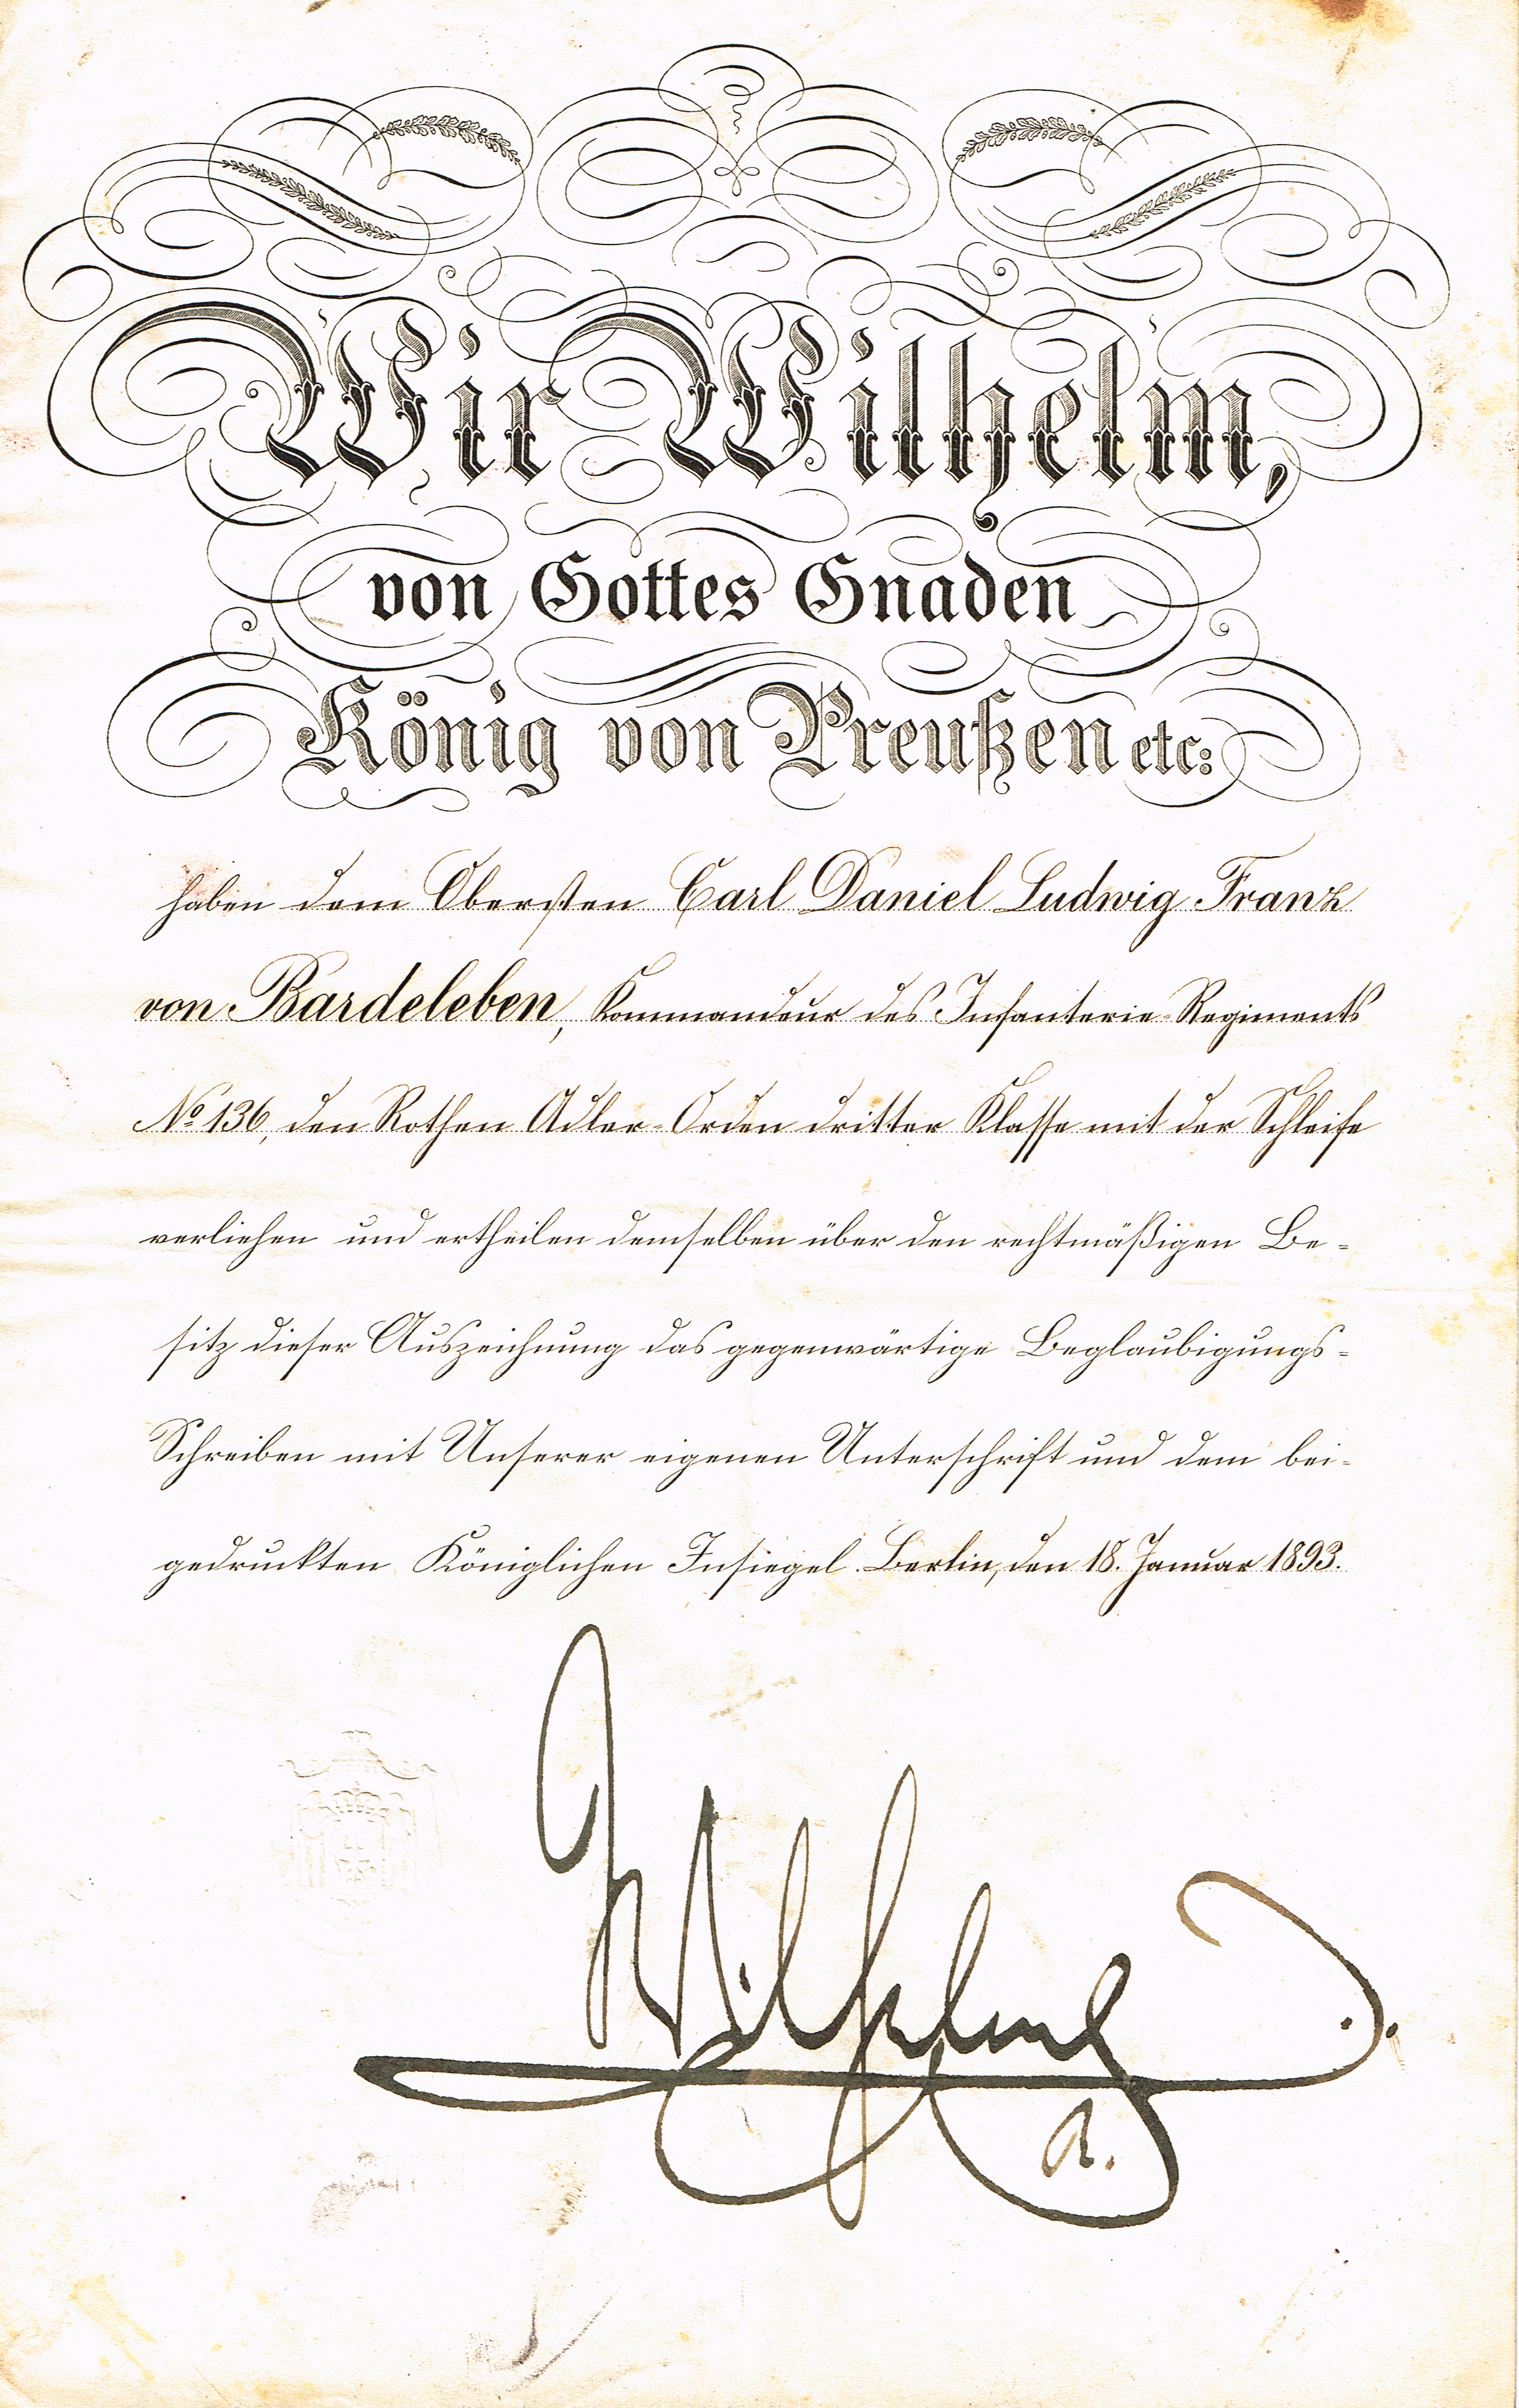 Wir Wilhelm,
von Gottes Gnaden
König von Preußen etc:
haben dem Obersten Carl Daniel Ludwig Franz
von Bardeleben, Kommandeur des Infanterie-Regiments
No 136, den Rothen Adler-Orden dritter Klasse mit der Schleife
verliehen und ertheilen demselben über den rechtmäßigen Be-
sitz dieser Auszeichnung das gegenwärtige Beglaubigungs-
Schreiben mit Unserer eigenen Unterschrift und dem bei-
gedruckten Königlichen Insiegel. Berlin, den 18. Januar 1893.
Wilhelm
R.